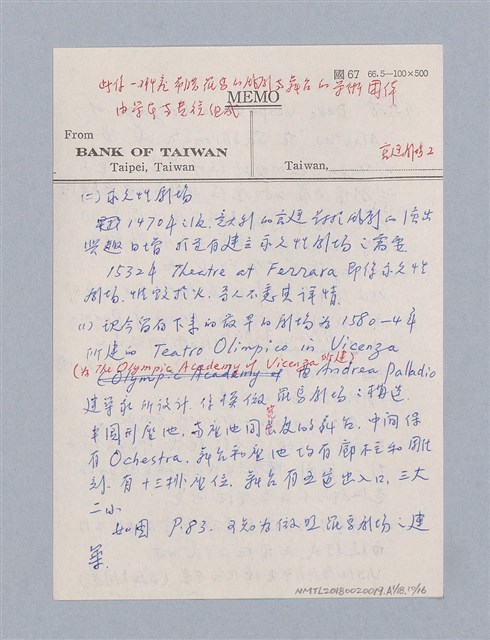 國 67 66.5—100×500
此係一研究希臘羅馬的戲劇与舞台的学術团体
由学者与貴族组成
MEMO
From
BANK OF TAIWAN
Taipei, Taiwan
Taiwan,
宫廷劇場 2
(二) 永久性劇場
1470年之後, 意大利的宫廷对於戲劇的演出
興趣日增 於是有建立永久性劇場之需要
1532年 Theatre at Ferrara 即係永久性
劇場. 惟毀於火. 吾人不悉其详情.
(1) 現今留存下來的最早的劇場为 1580—4年
所建的 Teatro Olimpico in Vicenza
(为 The Olympic Academy of Vicenza 所建)
Olympic Academy of 由 Andrea Palladio
建筑家所设计. 係模倣羅馬劇場之構造.
半圆形座池, 与座池同長度的舞台, 中间保
有 Ochestra. 舞台和座池均有廊柱和雕
刻. 有十三排座位. 舞台有五道出入口, 三大
二小
如图 P.83. 可知为倣照羅馬劇場之建
築.
NMTL20180020019.A1/18.17/16